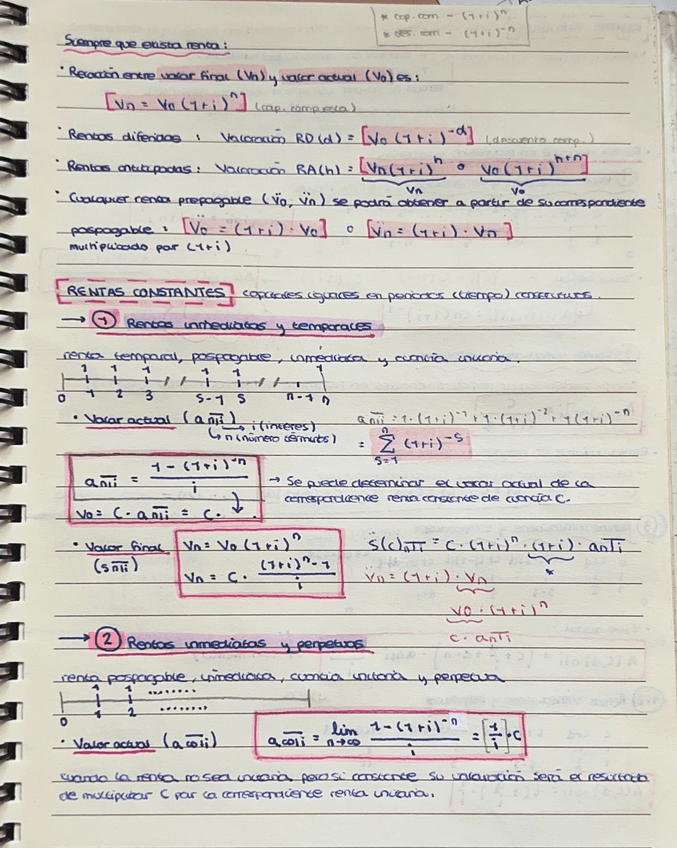 * cap. com – (1+i)^n
* des. com – (1+i)^-n
Siempre que exista renta:
· Relación entre valor final (Vn) y valor actual (V0) es:
[Vn = V0 (1+i)^n] (cap. compuesta)
· Rentas diferidas : Valoración RD(d) = [V0 (1+i)^-d] (descuento comp.)
· Rentas anticipadas: Valoración RA(h) = [Vn(1+i)^h o V0(1+i)^h+n]
Vn V0
· Cualquier renta prepagable (V̈0, V̈n) se podrá obtener a partir de su correspondiente
pospagable : [V̈0 = (1+i) · V0] o [V̈n = (1+i) · Vn]
multiplicado por (1+i)
[RENTAS CONSTANTES] capitales iguales en periodos (tiempo) consecutivos.
→ ① Rentas inmediatas y temporales
renta temporal, pospagable, inmediata y cuantía unitaria.
1 1 1 1 1 1
0 1 2 3 s-1 s n-1 n
· Valor actual (an̅|i) → i (interes) an̅|i = 1·(1+i)^-1 + 1·(1+i)^-2 + 1(1+i)^-n
↳ n (número términos) = Σ (1+i)^-s
n
s=1
an̅|i = 1-(1+i)^-n / i → Se puede determinar el valor actual de la
correspondiente renta constante de cuantía C.
V0 = C · an̅|i = C · ↓
· Valor final Vn = V0 (1+i)^n s̈(c)n̅|i = C · (1+i)^n · (1+i) · an̅|i
(sn̅|i) Vn = C · (1+i)^n - 1 / i V̈n = (1+i) · Vn *
V0 · (1+i)^n
C · an̅|i
→ ② Rentas inmediatas y perpetuas
renta pospagable, inmediata, cuantía unitaria y perpetua
1 1 ........
0 1 2 ........
· Valor actual (a∞̅|i) a∞̅|i = lim n→∞ 1-(1+i)^-n / i = [1/i]·C
cuando la renta no sea unitaria, pero si constante su valoración será el resultado
de multiplicar C por la correspondiente renta unitaria.